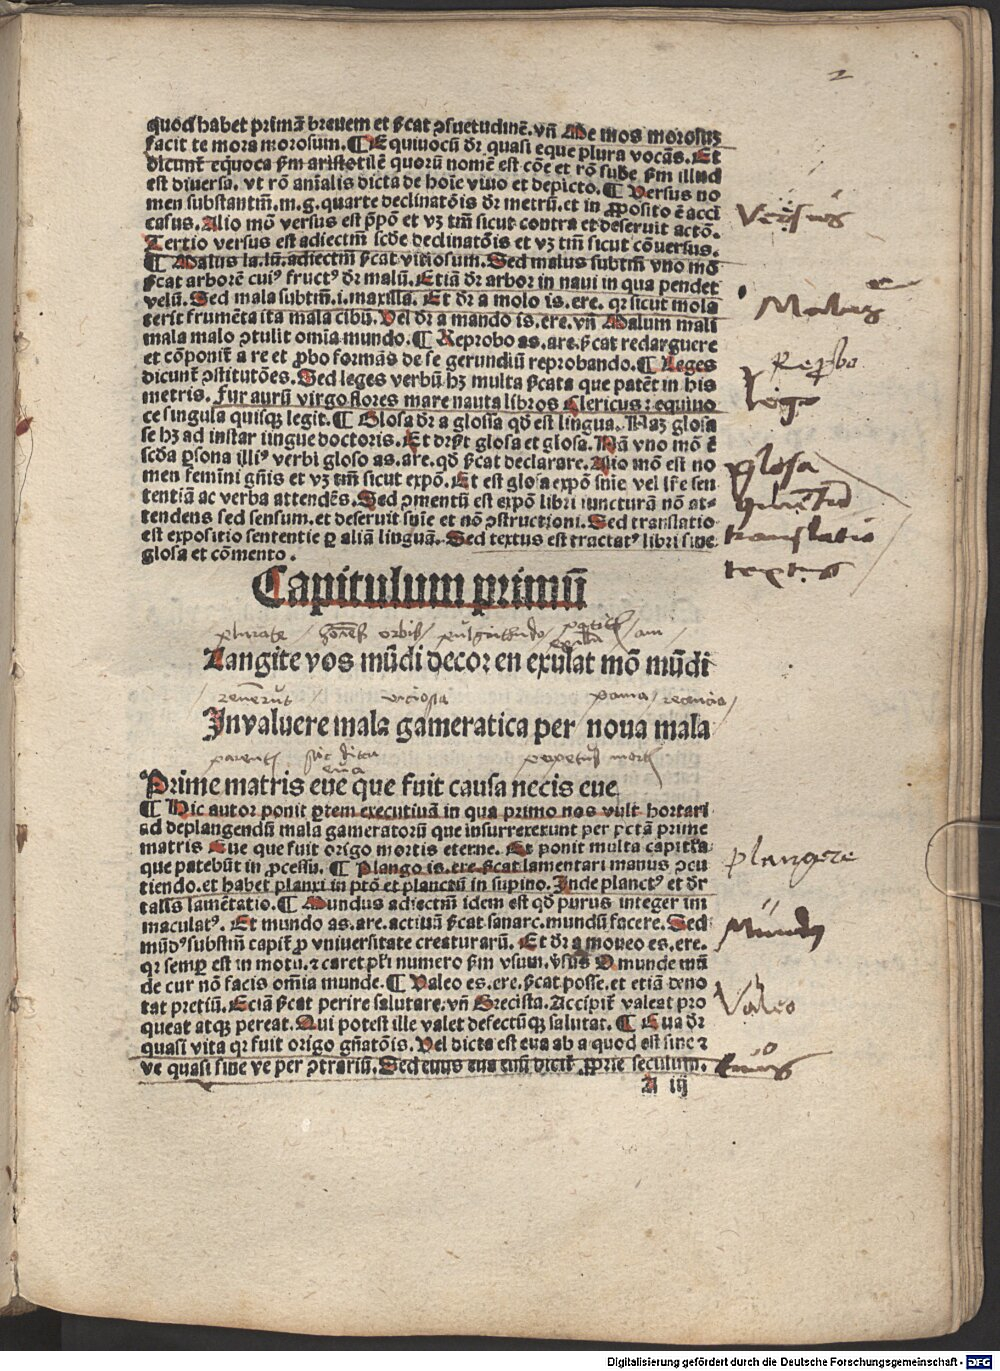 2
quod habet primā breuem et ſicat ꝯſuetudinē. vñ Me mos moroſus
facit te mora moroſum. ¶ Equiuocū dr̄ quaſi eque plura vocās. Et
dicunt̄ eq̄uoca ſm̄ ariſtotilē quorū nomē eſt cōe et rō ſube ſm̄ illud
eſt diuerſa. vt rō aīalis dicta de hoīe viuo et depicto. ¶ Verſus no
men ſubſtantiū. m. g. quarte declinatōis dr̄ metrū. et in ꝓpoſito ē acci
caſus. Alio mō verſus eſt p̄pō et vꝫ tm̄ ſicut contra et deſeruit actō.
Tertio verſus eſt adiectiū ſcōe declinatōis et vꝫ tm̄ ſicut cōuerſus.
¶ Malus la. lū. adiectiū ſicat vitioſum. Sed malus ſubtm̄ vno mō
ſicat arborē cuiꝰ fructꝰ dr̄ malū. Etiā dr̄ arbor in naui in qua pendet
velū. Sed mala ſubtm̄. i. maxilla. Et dr̄ a molo is. ere. qr ſicut mola
terit frumēta ita mala cibū. Vel dr̄ a mando is. ere. vñ Malum mali
mala malo ꝯtulit omīa mundo. ¶ Reprobo as. are. ſicat redarguere
et cōponit̄ a re et ꝓbo formās de ſe gerundiū reprobando. ¶ Leges
dicunt̄ ꝯſtitutōes. Sed leges verbū hꝫ multa ſicata que patēt in his
metris. Fur aurū virgo flores mare nauta libros Clericus: equiuo
ce ſingula quiſqꝫ legit. ¶ Gloſa dr̄ a gloſſa qd̄ eſt lingua. Naꝫ gloſa
ſe hꝫ ad inſtar lingue doctoris. Et dr̄pt̄ gloſa et gloſa. Nā vno mō ē
ſcd̄a ꝑſona illiꝰ verbi gloſo as. are. qd̄ ſicat declarare. Alio mō eſt no
men feminī gn̄is et vꝫ tm̄ ſicut expō. Et eſt gloſa expō ſnīe vel lr̄e ſen
tentiā ac verba attendēs. Sed ꝯmentū eſt expō libri iuncturā nō at⸗
tendens ſed ſenſum. et deſeruit ſnīe et nō ꝯſtructioni. Sed tranſlatio
eſt expoſitio ſententie ꝑ aliā linguā. Sed textus eſt tractatꝰ libri ſine
gloſa et cōmento.
Verſus
Malus
Reprobo
lego
gloſa
tranſlatio
textus
Capitulum primū
plurate orbis pulgritudo
Tangite vos mūdi decor en exulat mō mūdi
vicioſa poma recencia
Invaluere mala gameratica per noua mala
parentis eua perpetue mortis
Prime matris eue que fuit cauſa necis eue
¶ Hic autor ponit ꝑtem executiuā in qua primo nos vult hortari
ad deplangendū mala gameratorū que inſurrexerunt per pctā prime
matris Eue que fuit origo mortis eterne. Et ponit multa capitl̄a
que patebūt in ꝓceſſu. ¶ Plango is. ere. ſicat lamentari manus ꝑcu
tiendo. et habet planxi in ptō et planctū in ſupino. Inde planctꝰ et dr̄
talis lamētatio. ¶ Mundus adiectiū idem eſt qd̄ purus integer im
maculatꝰ. Et mundo as. are. actiuū ſicat ſanare. mundū facere. Sed
mūdꝰ ſubſtm̄ capit̄ ꝓ vniuerſitate creaturarū. Et dr̄ a moueo es. ere.
qr ſemꝑ eſt in motu. ⁊ caret pl̄i numero ſm̄ vſum. v̄ſus O munde mū
de cur nō facis omīa munde. ¶ Valeo es. ere. ſicat poſſe. et etiā deno
tat pretiū. Eciā ſicat perire ſalutare. vñ Greciſta. Accipit̄ valeat pro
queat atqꝫ pereat. Qui poteſt ille valet defectūqꝫ ſalutat. ¶ Eua dr̄
quaſi vita qr fuit origo gn̄atōis. Vel dicta eſt eua ab a quod eſt ſine ⁊
ve quaſi ſine ve per ꝯtrariū. Sed euus eua euū dicit̄ ꝓprie ſeculum.
A iij
plangere
Mundꝰ
Valeo
euus
Digitalisierung gefördert durch die Deutsche Forschungsgemeinschaft - DFG